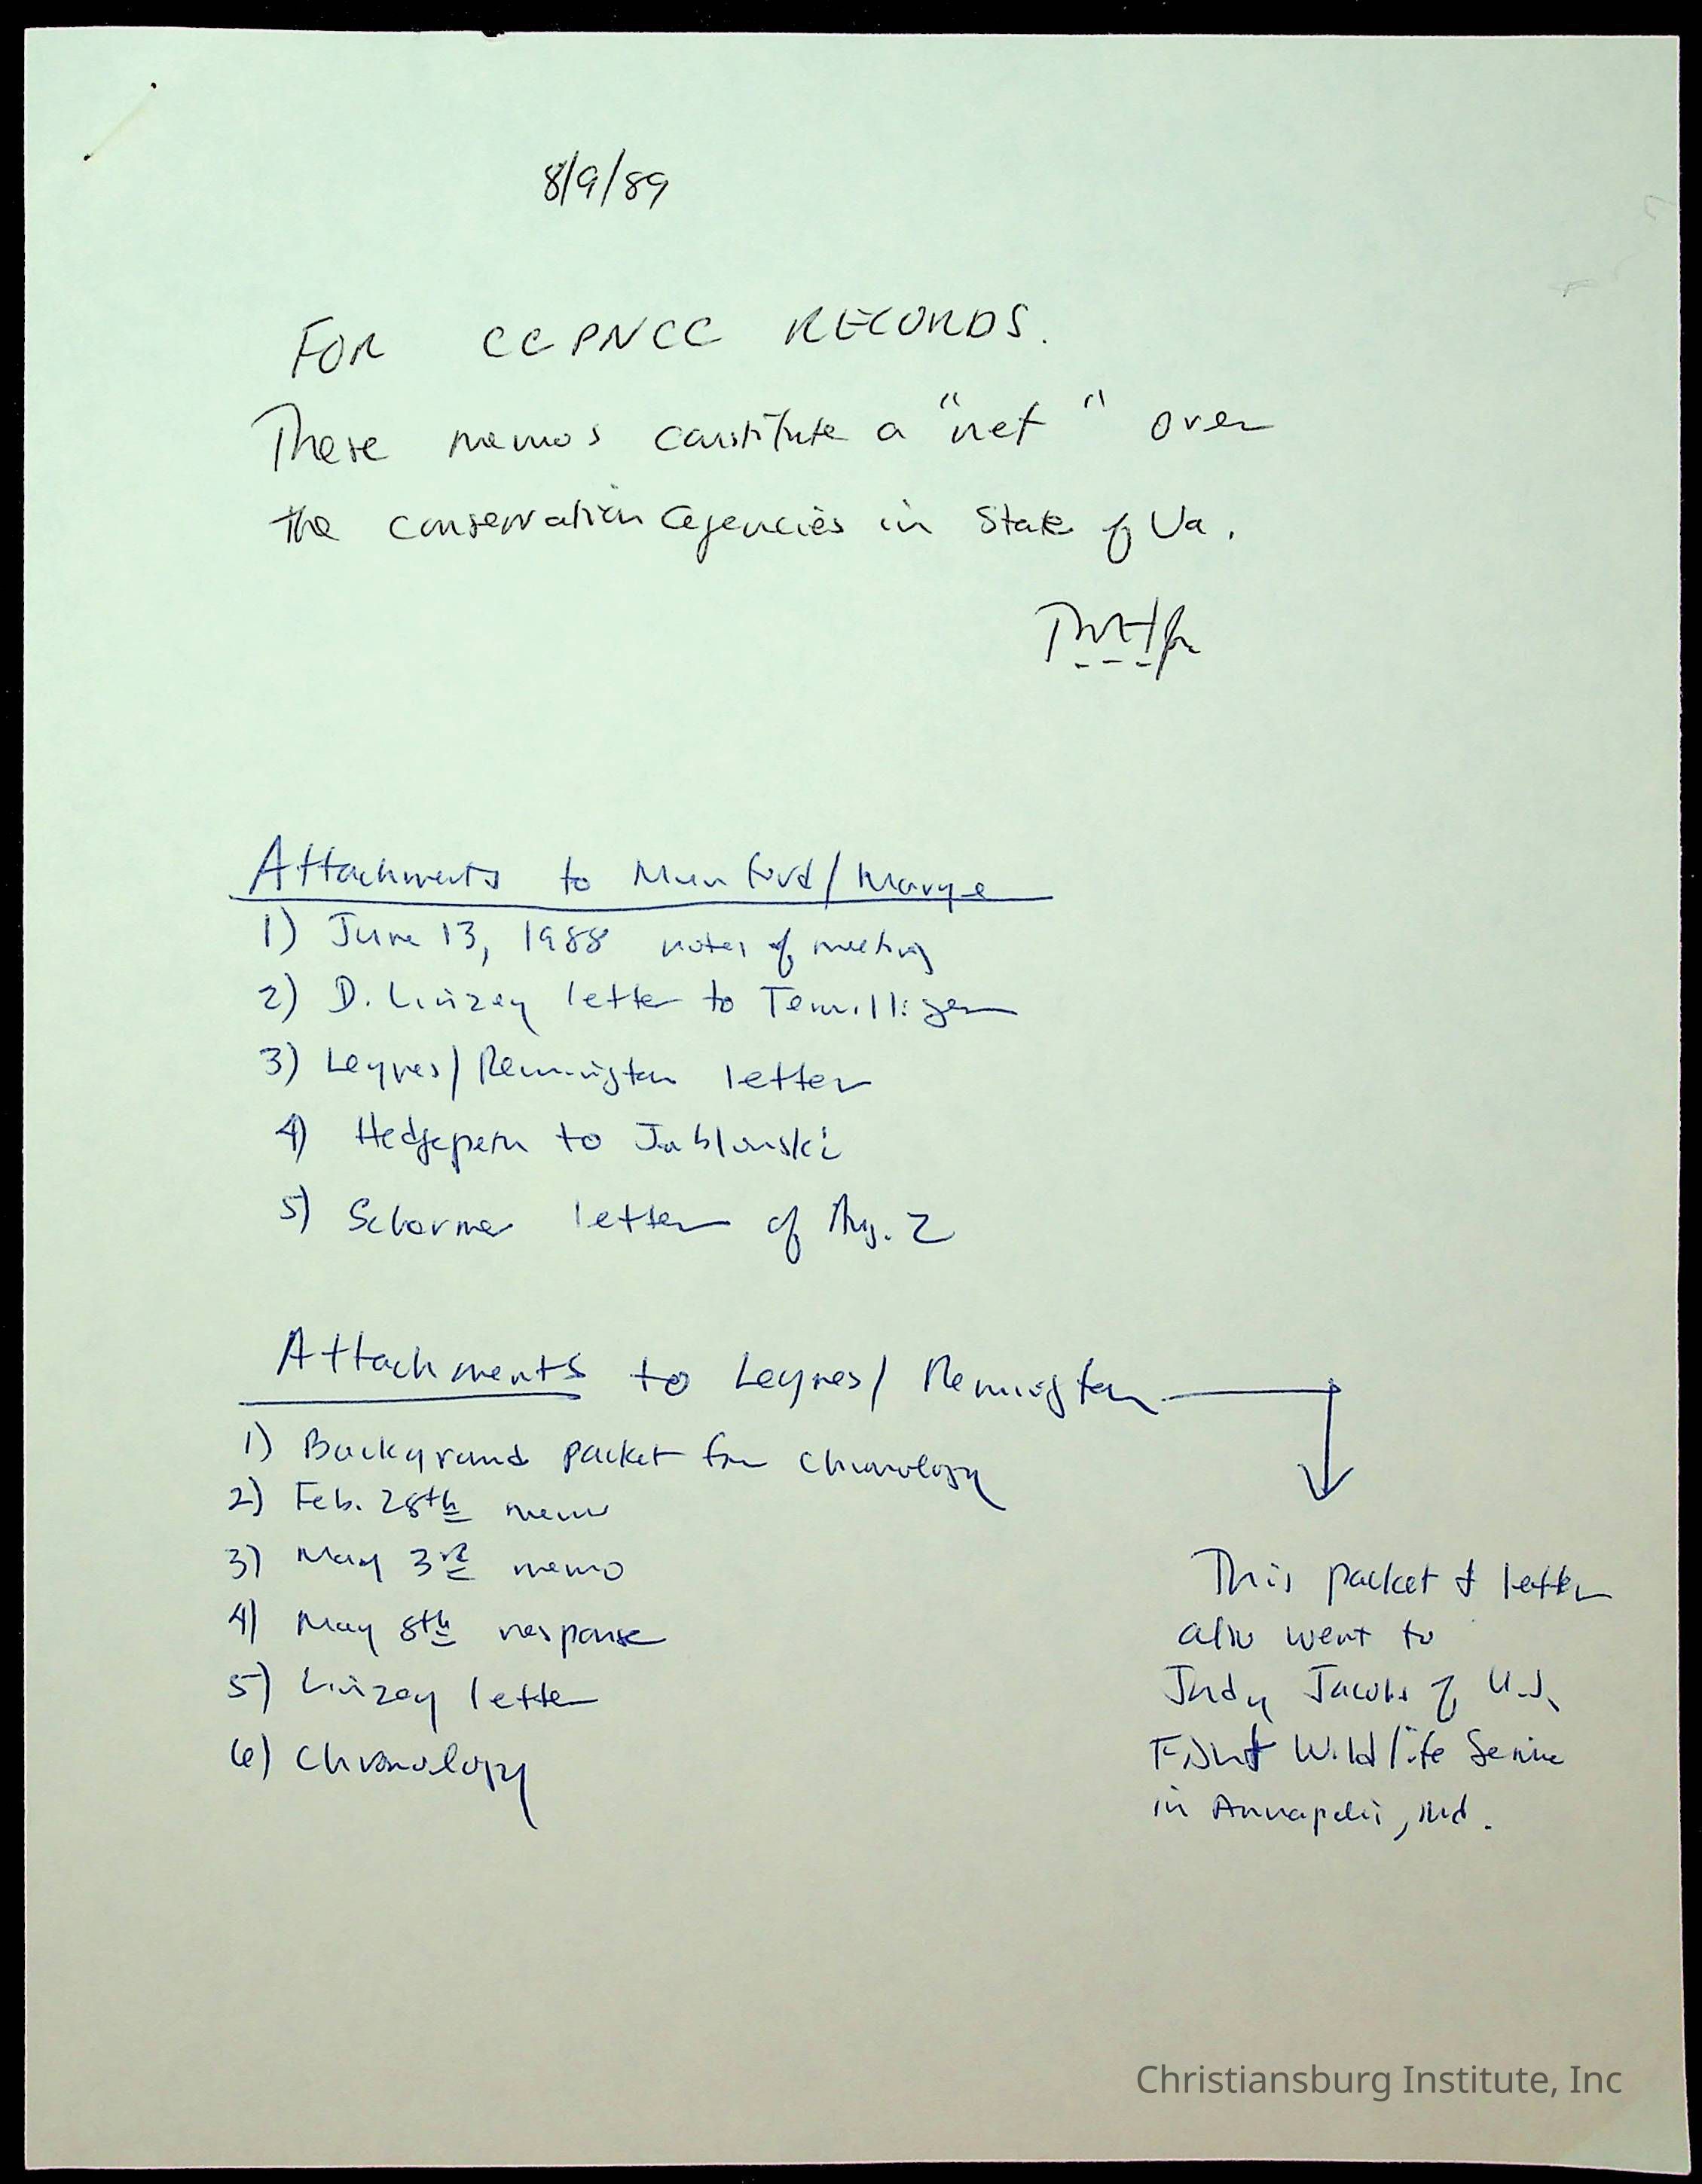 8/9/89
FOR CCPNCC RECORDS.
These memos constitute a "net" over
the conservation agencies in State of Va.
Attachments to Munford/
1) June 13, 1988 notes of meeting
2) D. Linzey letter to Terwilliger
3) Leynes/Remington letter
4) Hedgepeth to Jablonski
5) letter of Aug. 2
Attachments to Leynes/Remington
1) Background packet for chronology
2) Feb. 28th memo
3) May 3rd memo
4) May 8th response
5) Linzey letter
6) Chronology
This packet & letter
also went to
Judy Jacobs of U.S.
Fish & Wildlife Service
in Annapolis, Md.
Christiansburg Institute, Inc